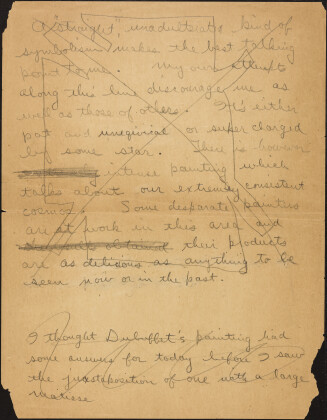 A straight, unadulterated kind of
symbolism makes the best talking
point to me. My own attempts
along this line discourage me as
much as those of others. It's either
pat and unequivical or super charged
by some star. There is however
intense painting which
talks about our extremely consistent
cosmos. Some desparate painters
are at work in this area and
their products
are as delicious as anything to be
seen now or in the past.
I thought Dubuffet's painting had
some answers for today before I saw
the juxtaposition of one with a large
matisse